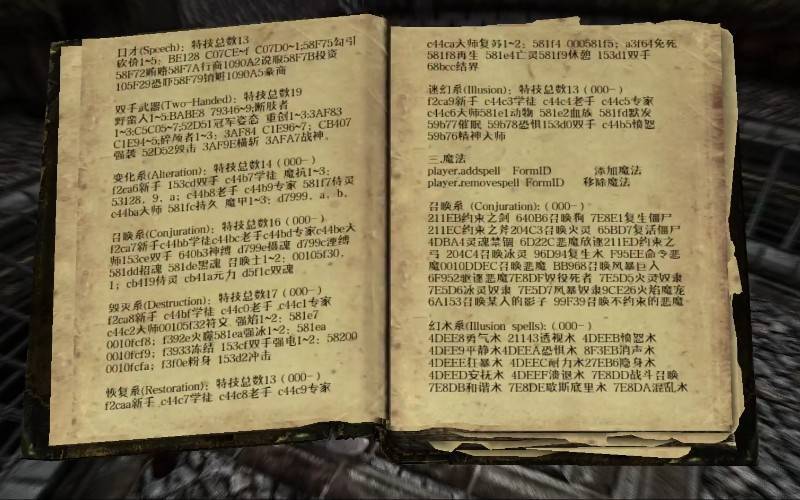 口才(Speech): 特技总数13
砍价1~5: BE128 C07CE~f C07D0~1;58F75勾引
58F72贿赂58F7A行商1090A2说服58F7B投资
105F29恐吓58F79销赃1090A5豪商
双手武器(Two-Handed): 特技总数19
野蛮人1~5:BABE8 79346~9;断肢者
1~3:C5C05~7;52D51冠军姿态 重创1~3:3AF83
C1E94~5;碎颅者1~3; 3AF84 C1E96~7; CB407
强袭 52D52毁击 3AF9E横斩 3AFA7战神。
变化系(Alteration): 特技总数14 (000-)
f2ca6新手 153cd双手 c44b7学徒 魔抗1~3;
53128. 9. a; c44b8老手 c44b9专家 581f7侍灵
c44ba大师 581fc持久 魔甲1~3; d7999. a. b.
召唤系(Conjuration): 特技总数16 (000-)
f2ca7新手c44bb学徒c44bc老手c44bd专家c44be大
师153ce双手 640b3神缚 d799e摄魂 d799c湮缚
581dd招魂 581de黑魂 召唤士1~2: 00105f30.
1; cb419侍灵 cb41a元力 d5f1c双魂
毁灭系(Destruction): 特技总数17 (000-)
f2ca8新手 c44bf学徒 c44c0老手 c44c1专家
c44c2大师00105f32符文 强焰1~2: 581e7
0010fcf8; f392e火朦581ea强冰1~2: 581ea
0010fcf9; f3933冻结 153cf双手强电1~2: 58200
0010fcfa; f3f0e粉身 153d2冲击
恢复系(Restoration): 特技总数13 (000-)
f2caa新手 c44c7学徒 c44c8老手 c44c9专家
c44ca大师复苏1~2: 581f4 000581f5; a3f64免死
581f8再生 581e4亡灵581f9休憩 153d1双手
68bcc结界
迷幻系(Illusion): 特技总数13 (000-)
f2ca9新手 c44c3学徒 c44c4老手 c44c5专家
c44c6大师581e1动物 581e2血族 581fd默发
59b77催眠 59b78恐惧153d0双手 c44b5愤怒
59b76精神大师
三.魔法
player.addspell FormID 添加魔法
player.removespell FormID 移除魔法
召唤系 (Conjuration): (000-)
211EB约束之剑 640B6召唤狗 7E8E1复生僵尸
211EC约束之斧204C3召唤火灵 65BD7复活僵尸
4DBA4灵魂禁锢 6D22C恶魔放逐211ED约束之
弓 204C4召唤冰灵 96D94复生术 F95EE命令恶
魔0010DDEC召唤恶魔 BB968召唤风暴巨人
6F952驱逐恶魔7E8DF奴役死者 7E5D5火灵奴隶
7E5D6冰灵奴隶 7E5D7风暴奴隶9CE26火焰魔宠
6A153召唤某人的影子 99F39召唤不约束的恶魔
幻术系(Illusion spells): (000-)
4DEE8勇气术 21143透视术 4DEEB愤怒术
4DEE9平静术4DEEA恐惧术 8F3EB消声术
4DEEE狂暴术 4DEEC耐力术27EB6隐身术
4DEED安抚术 4DEEF溃退术 7E8DD战斗召唤
7E8DB和谐术 7E8DE歇斯底里术 7E8DA混乱术